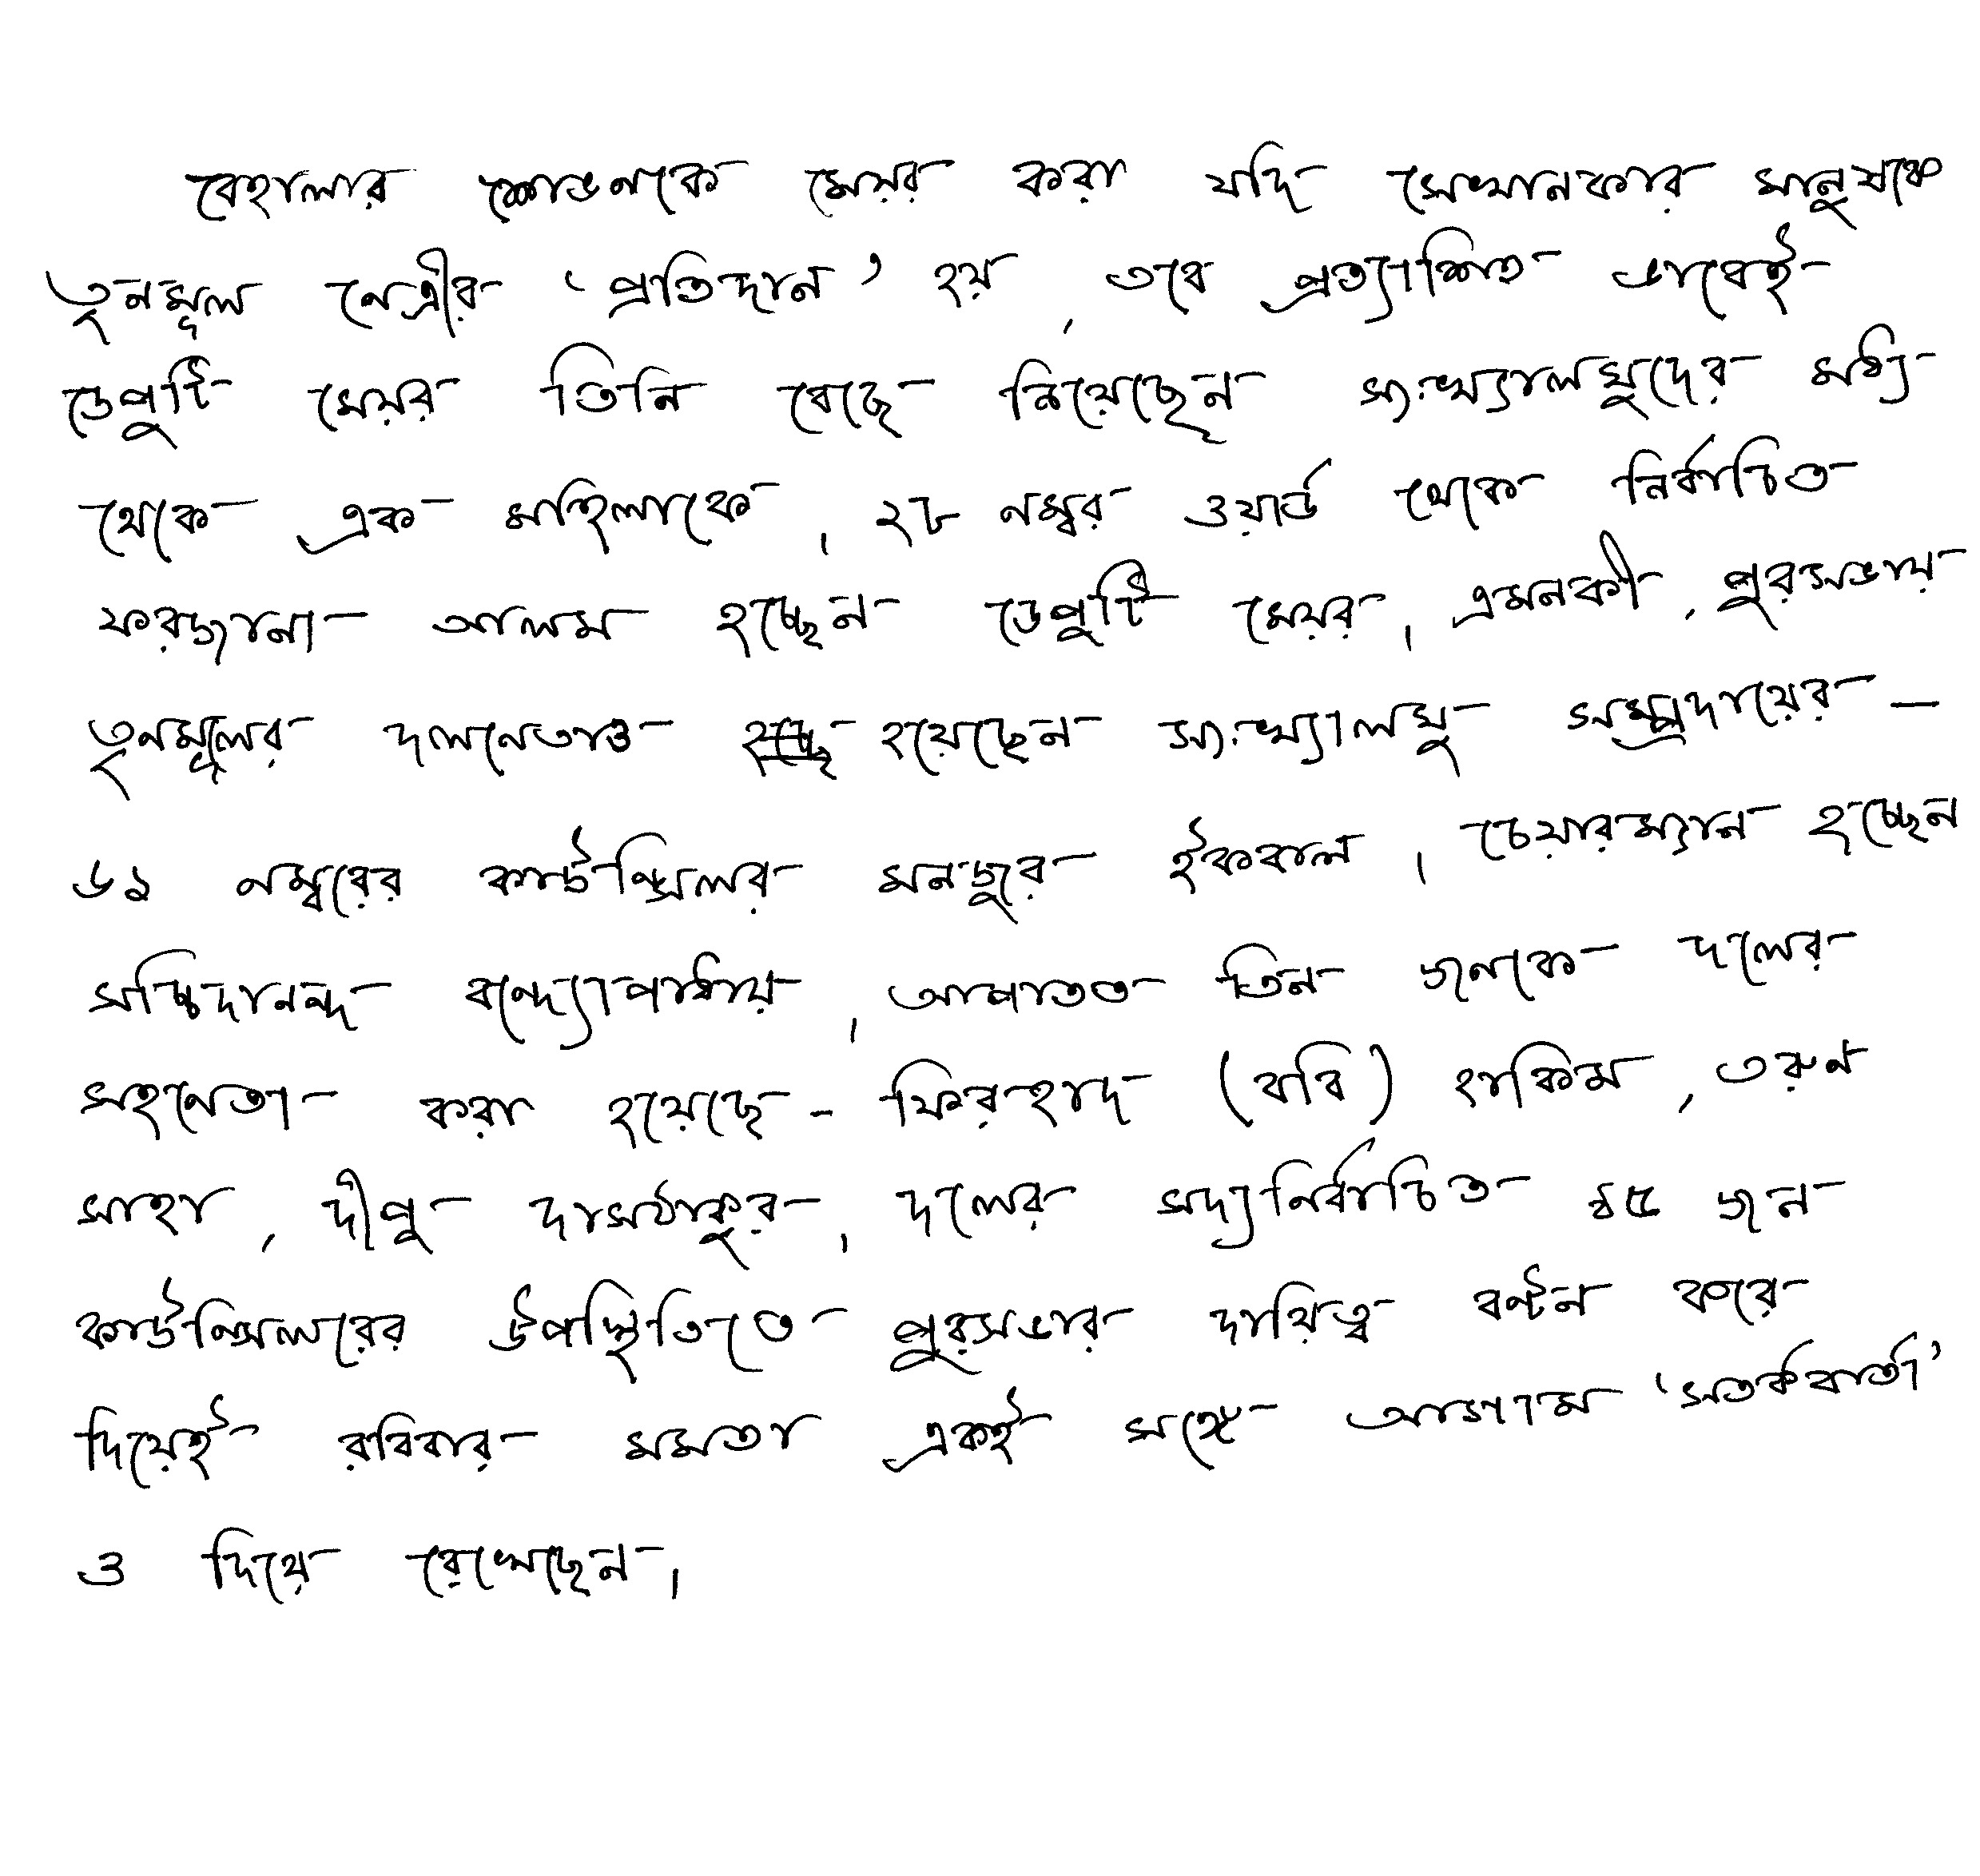 বেহালার শোভনকে মেয়র করা যদি সেখানকার মানুষকে
তৃনমূল নেত্রীর ‘প্রতিদান’ হয়, তবে প্রত্যাশিত ভাবেই
ডেপুটি মেয়র তিনি বেছে নিয়েছেন সংখ্যালঘুদের মধ্যি
থেকে এক মহিলাকে। ২৮ নম্বর ওয়ার্ড থেকে নির্বাচিত
ফরজানা আলম হচ্ছেন ডেপুটি মেয়র। এমনকী, পুরসভায়
তৃনমূলের দলনেতাও হয়েছেন সংখ্যালঘু সম্প্রদায়ের —
৬১ নম্বরের কাউন্সিলর মনজুর ইকবাল। চেয়ারম্যান হচ্ছেন
সচ্চিদানন্দ বন্দ্যোপাধ্যায়। আপাতত তিন জনকে দলের
সহনেতা করা হয়েছে - ফিরহাদ (ববি) হাকিম, তরুন
সাহা, দীপু দাসঠাকুর। দলের সদ্যনির্বাচিত ৯৫ জন
কাউন্সিলরের উপস্থিতিতে পুরসভার দায়িত্ব বণ্টন করে
দিয়েই রবিবার মমতা একই সঙ্গে আগাম ‘সতর্কবার্তা’
ও দিয়ে রেখেছেন।